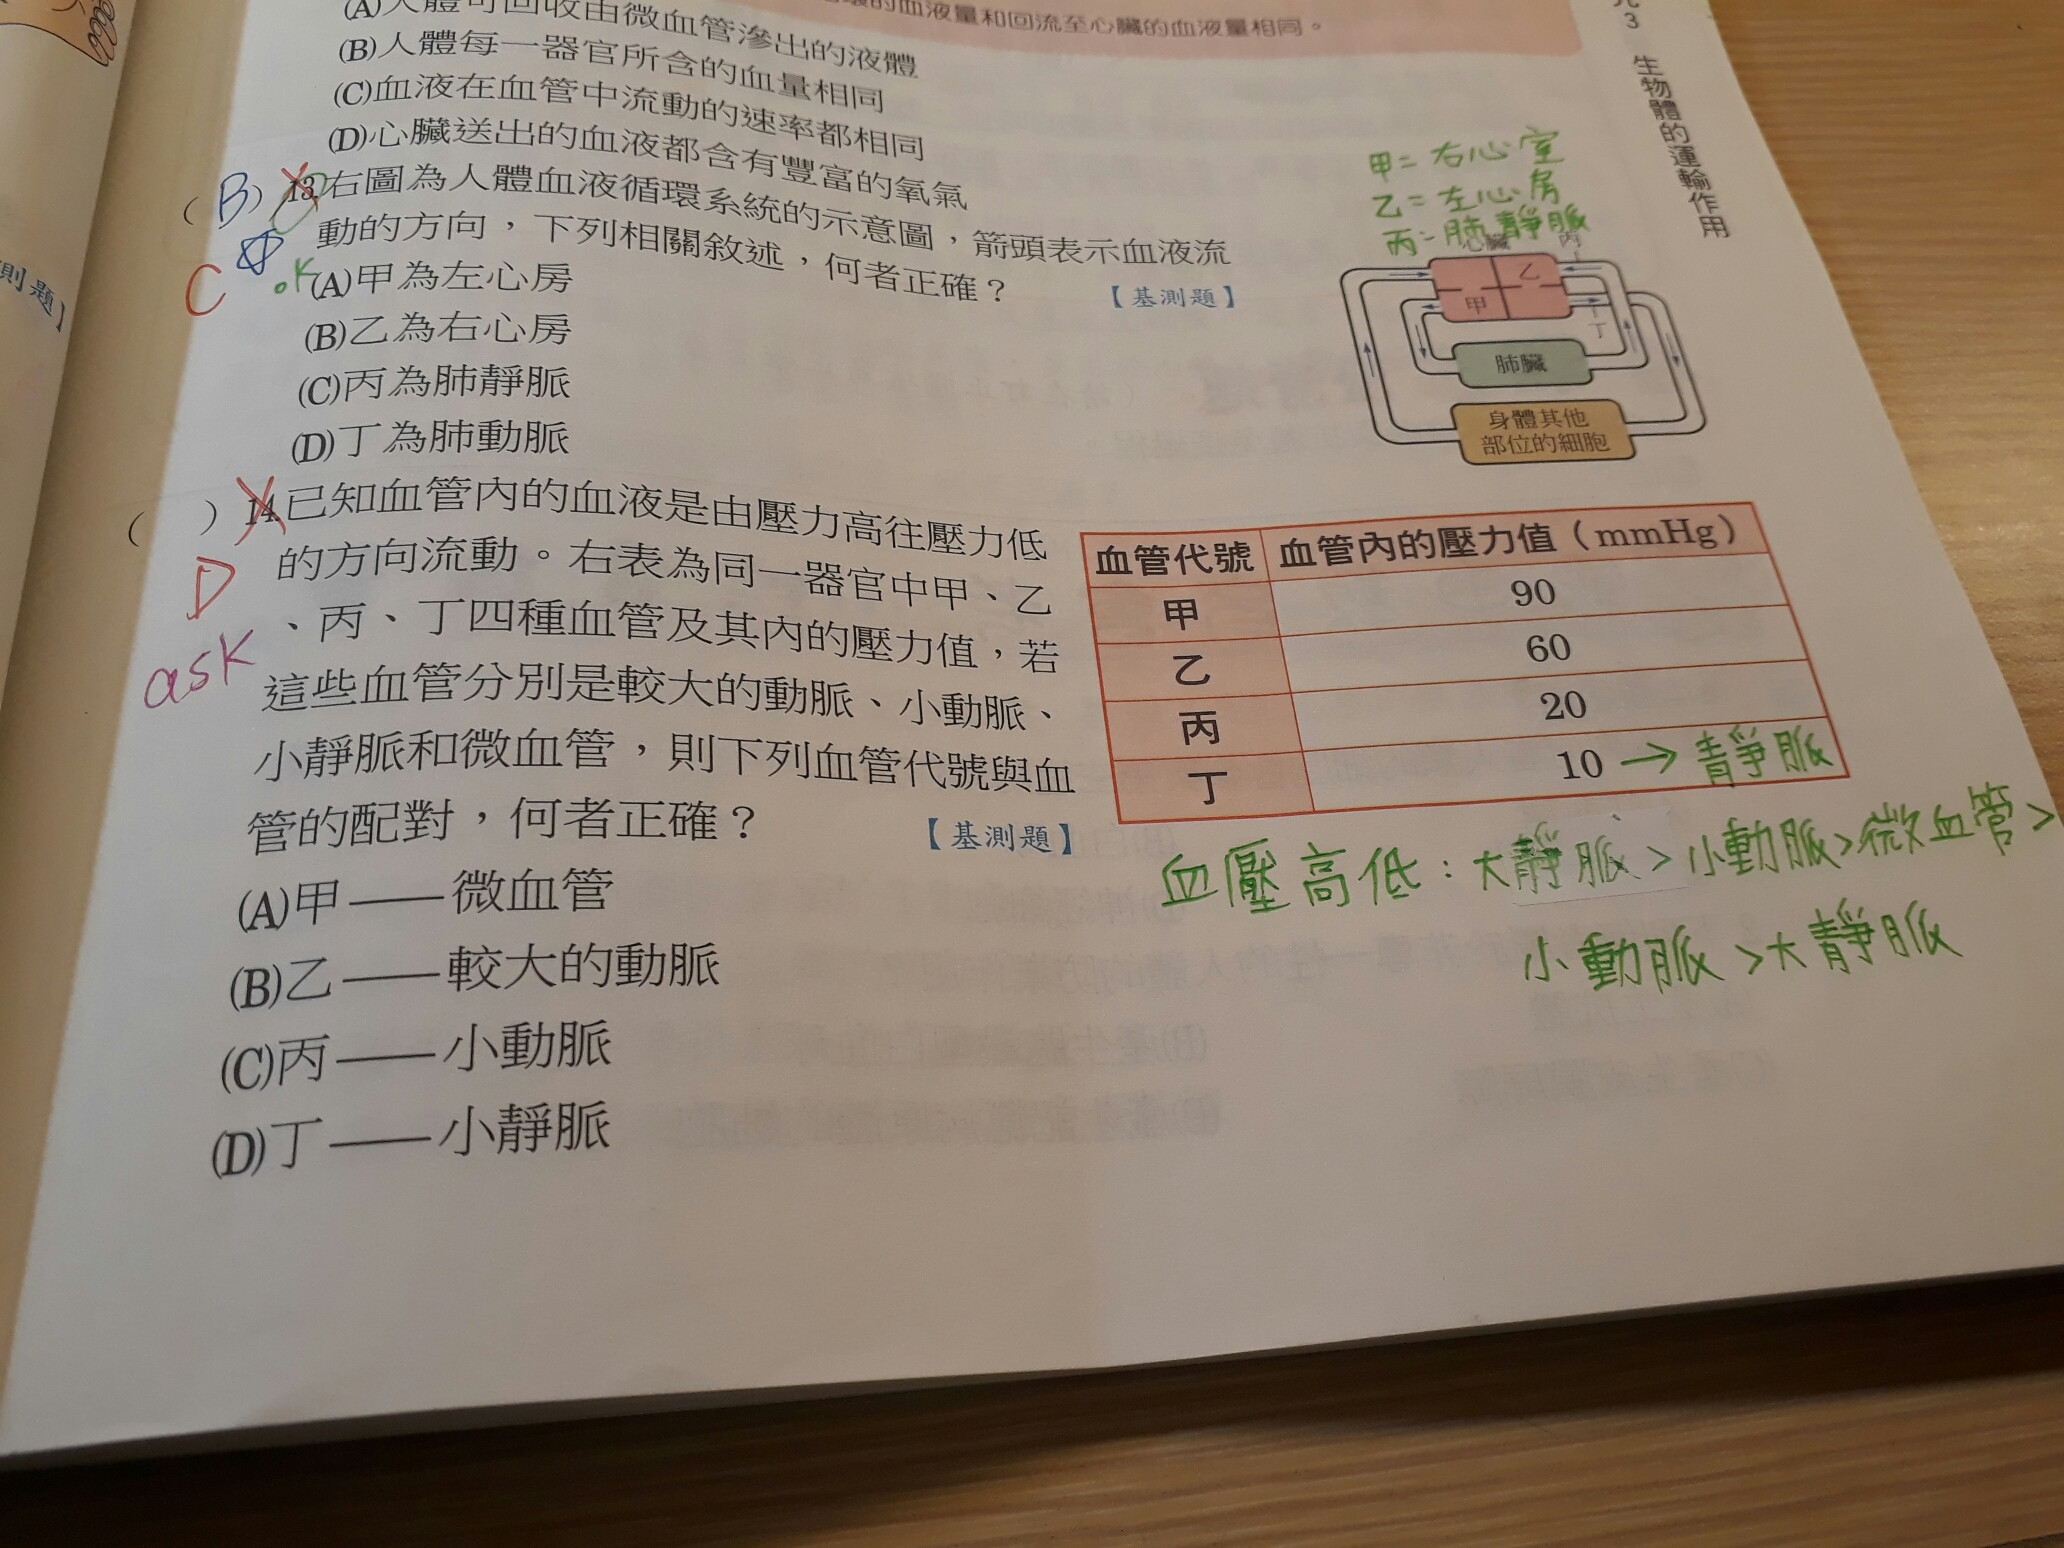 人體可回收由微血管滲出的液體
(B)人體每一器官所含的血量相同
(C)血液在血管中流動的速率都相同
(D)心臟送出的血液都含有豐富的氧氣
的血液量和回流至心臟的血液量相同。
3 生物體的運輸作用
(B) 13.右圖為人體血液循環系統的示意圖，箭頭表示血液流
動的方向，下列相關敘述，何者正確？ 【基測題】
C
ok
(A)甲為左心房
(B)乙為右心房
(C)丙為肺靜脈
(D)丁為肺動脈
甲=右心室
乙=左心房
丙=肺靜脈
心臟
丙
乙
甲
丁
肺臟
身體其他
部位的細胞
( ) 14.已知血管內的血液是由壓力高往壓力低
的方向流動。右表為同一器官中甲、乙
、丙、丁四種血管及其內的壓力值，若
這些血管分別是較大的動脈、小動脈、
小靜脈和微血管，則下列血管代號與血
管的配對，何者正確？ 【基測題】
D
ask
(A)甲——微血管
(B)乙——較大的動脈
(C)丙——小動脈
(D)丁——小靜脈
血管代號 血管內的壓力值（mmHg）
甲 90
乙 60
丙 20
丁 10 → 靜脈
血壓高低：大靜脈>小動脈>微血管>
小動脈>大靜脈
測題】